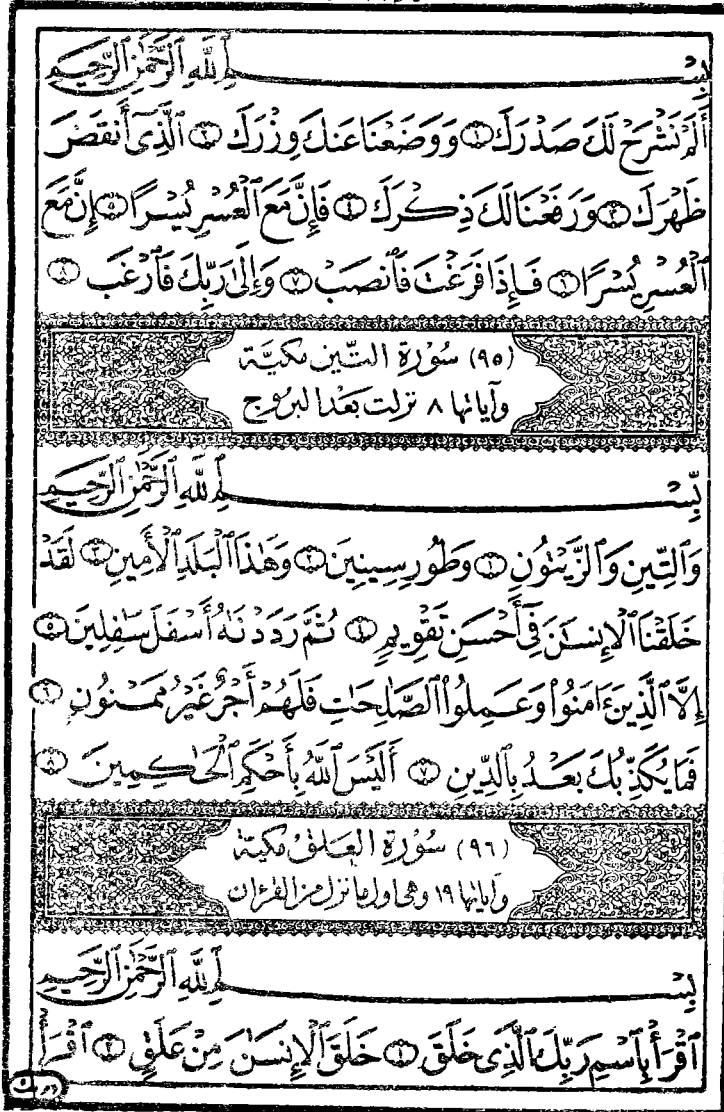 بِسْمِ ٱللَّهِ ٱلرَّحْمَٰنِ ٱلرَّحِيمِ
أَلَمْ نَشْرَحْ لَكَ صَدْرَكَ ١ وَوَضَعْنَا عَنكَ وِزْرَكَ ٢ ٱلَّذِىٓ أَنقَضَ
ظَهْرَكَ ٣ وَرَفَعْنَا لَكَ ذِكْرَكَ ٤ فَإِنَّ مَعَ ٱلْعُسْرِ يُسْرًا ٥ إِنَّ مَعَ
ٱلْعُسْرِ يُسْرًا ٦ فَإِذَا فَرَغْتَ فَٱنصَبْ ٧ وَإِلَىٰ رَبِّكَ فَٱرْغَب ٨
(٩٥) سُورَة التِّين مَكيَّة
وَآيَاتُهَا ٨ نَزَلَت بَعْدَ البُرُوج
بِّسْمِ ٱللَّهِ ٱلرَّحْمَٰنِ ٱلرَّحِيمِ
وَٱلتِّينِ وَٱلزَّيْتُونِ ١ وَطُورِ سِينِينَ ٢ وَهَٰذَا ٱلْبَلَدِ ٱلْأَمِينِ ٣ لَقَدْ
خَلَقْنَا ٱلْإِنسَٰنَ فِىٓ أَحْسَنِ تَقْوِيمٍ ٤ ثُمَّ رَدَدْنَٰهُ أَسْفَلَ سَٰفِلِينَ ٥
إِلَّا ٱلَّذِينَ ءَامَنُوا۟ وَعَمِلُوا۟ ٱلصَّٰلِحَٰتِ فَلَهُمْ أَجْرٌ غَيْرُ مَمْنُونٍ ٦
فَمَا يُكَذِّبُكَ بَعْدُ بِٱلدِّينِ ٧ أَلَيْسَ ٱللَّهُ بِأَحْكَمِ ٱلْحَٰكِمِينَ ٨
(٩٦) سُورَة العَلَق مَكيَّة
وَآيَاتُهَا ١٩ وَهِىَ أوّل مَا نَزَل مِنَ القُرْءَان
بِسْمِ ٱللَّهِ ٱلرَّحْمَٰنِ ٱلرَّحِيمِ
ٱقْرَأْ بِٱسْمِ رَبِّكَ ٱلَّذِى خَلَقَ ١ خَلَقَ ٱلْإِنسَٰنَ مِنْ عَلَقٍ ٢ ٱقْرَأْ